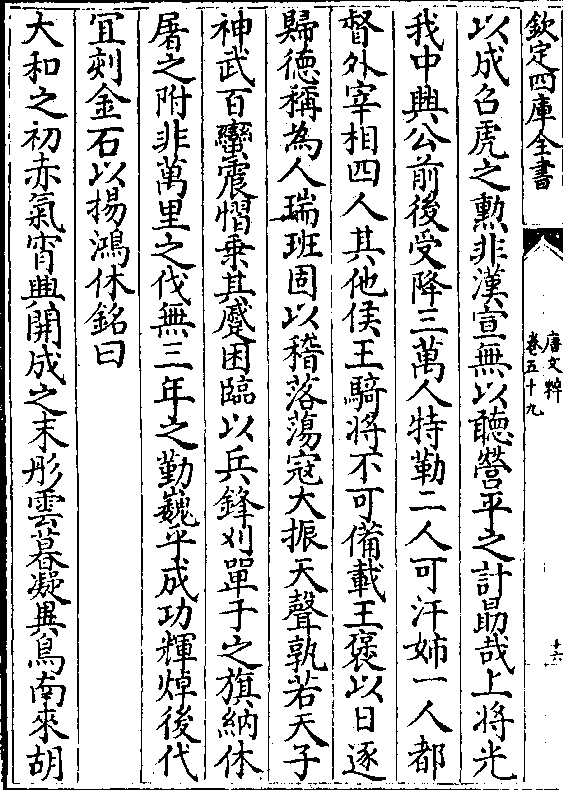 欽定四庫全書
唐文粹
卷五十九
十六
以成召虎之勲非漢宣無以聽營平之計勗哉上將光
我中興公前後受降三萬人特勒二人可汗姊一人都
督外宰相四人其他侯王騎將不可備載王褒以日逐
歸德稱為人瑞班固以稽落蕩寇大振天聲孰若天子
神武百蠻震慴乗其蹙困臨以兵鋒刈單于之旗納休
屠之附非萬里之伐無三年之勤巍乎成功輝焯後代
宜刻金石以揚鴻休銘曰
大和之初赤氣宵興開成之末彤雲暮凝異鳥南來胡